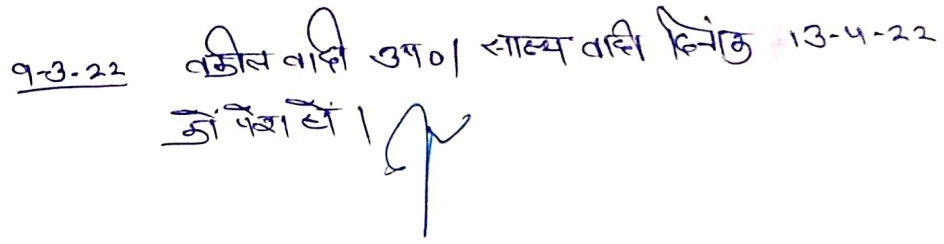 9-3-22 वकील वादी उप०। साक्ष्य वादी दिनांक 13-4-22
को पेश हों।